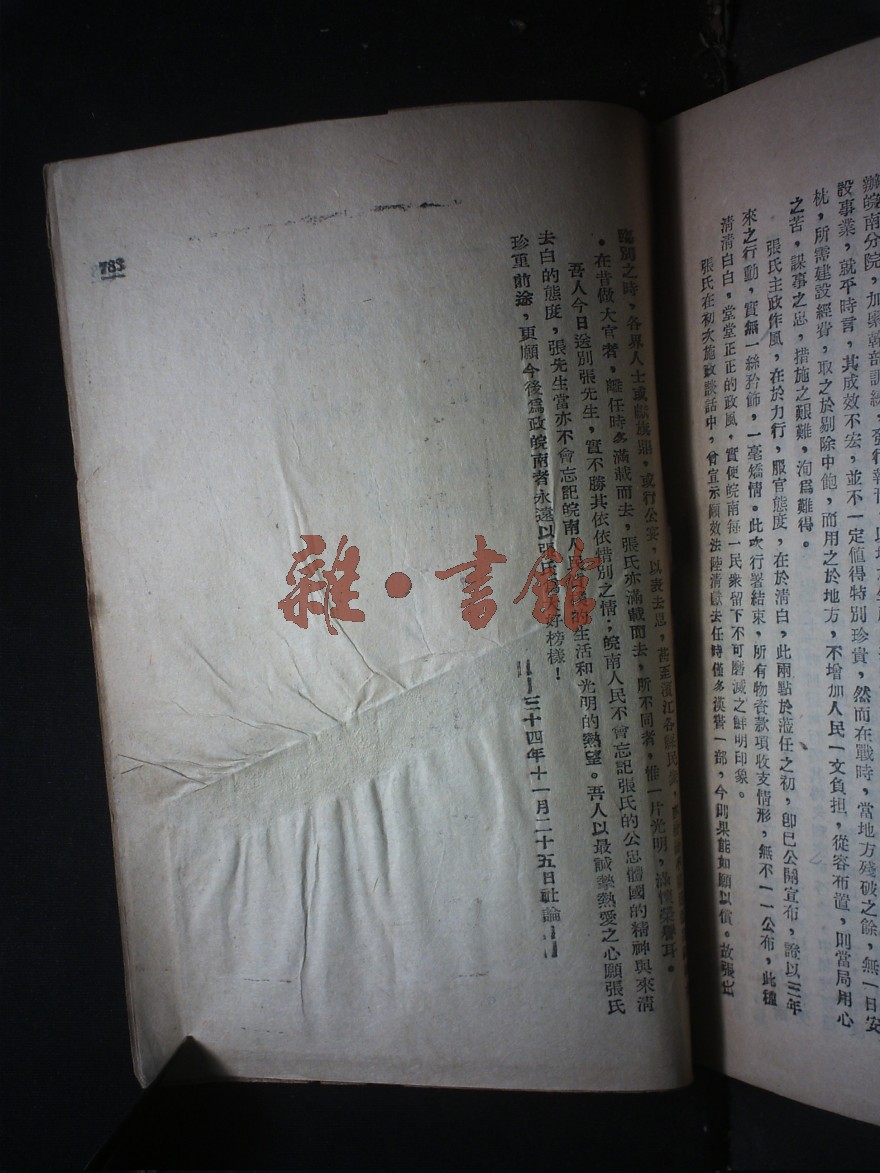 辦皖南分院，加緊幹部訓練，發行報刊，以
設事業，就平時言，其成效不宏，並不一定值得特別珍貴，然而在戰時，當地方殘破之餘，無一日安
枕，所需建設經費，取之於剔除中飽，而用之於地方，不增加人民一文負担，從容布置，則當局用心
之苦，謀事之忠，措施之艱難，洵爲難得。
張氏主政作風，在於力行，服官態度，在於清白，此兩點於蒞任之初，卽巳公開宣布，證以三年
來之行動，實無一絲矜飾，一毫矯情。此次行署結束，所有物資款項收支情形，無不一一公布，此種
清清白白，堂堂正正的政風，實使皖南每一民衆留下不可磨滅之鮮明印象。
張氏在初次施政談話中，曾宣示願效法陸清獻去任時僅多漢書一部，今則果能如願以償。故張氏
臨別之時，各界人士或獻旗鼎，或行公宴，以表去思，甚至濱江各縣民衆，
。在昔做大官者，離任時多滿載而去，張氏亦滿載而去，所不同者，惟一片光明，滿懷榮譽耳。
吾人今日送別張先生，實不勝其依依惜別之情；皖南人民不會忘記張氏的公忠體國的精神與來清
去白的態度，張先生當亦不會忘記皖南人民的生活和光明的熱望。吾人以最誠摯熱愛之心願張氏
珍重前途，更願今後爲政皖南者永遠以張氏好榜樣！
三十四年十一月二十五日社論
783
雜·書館